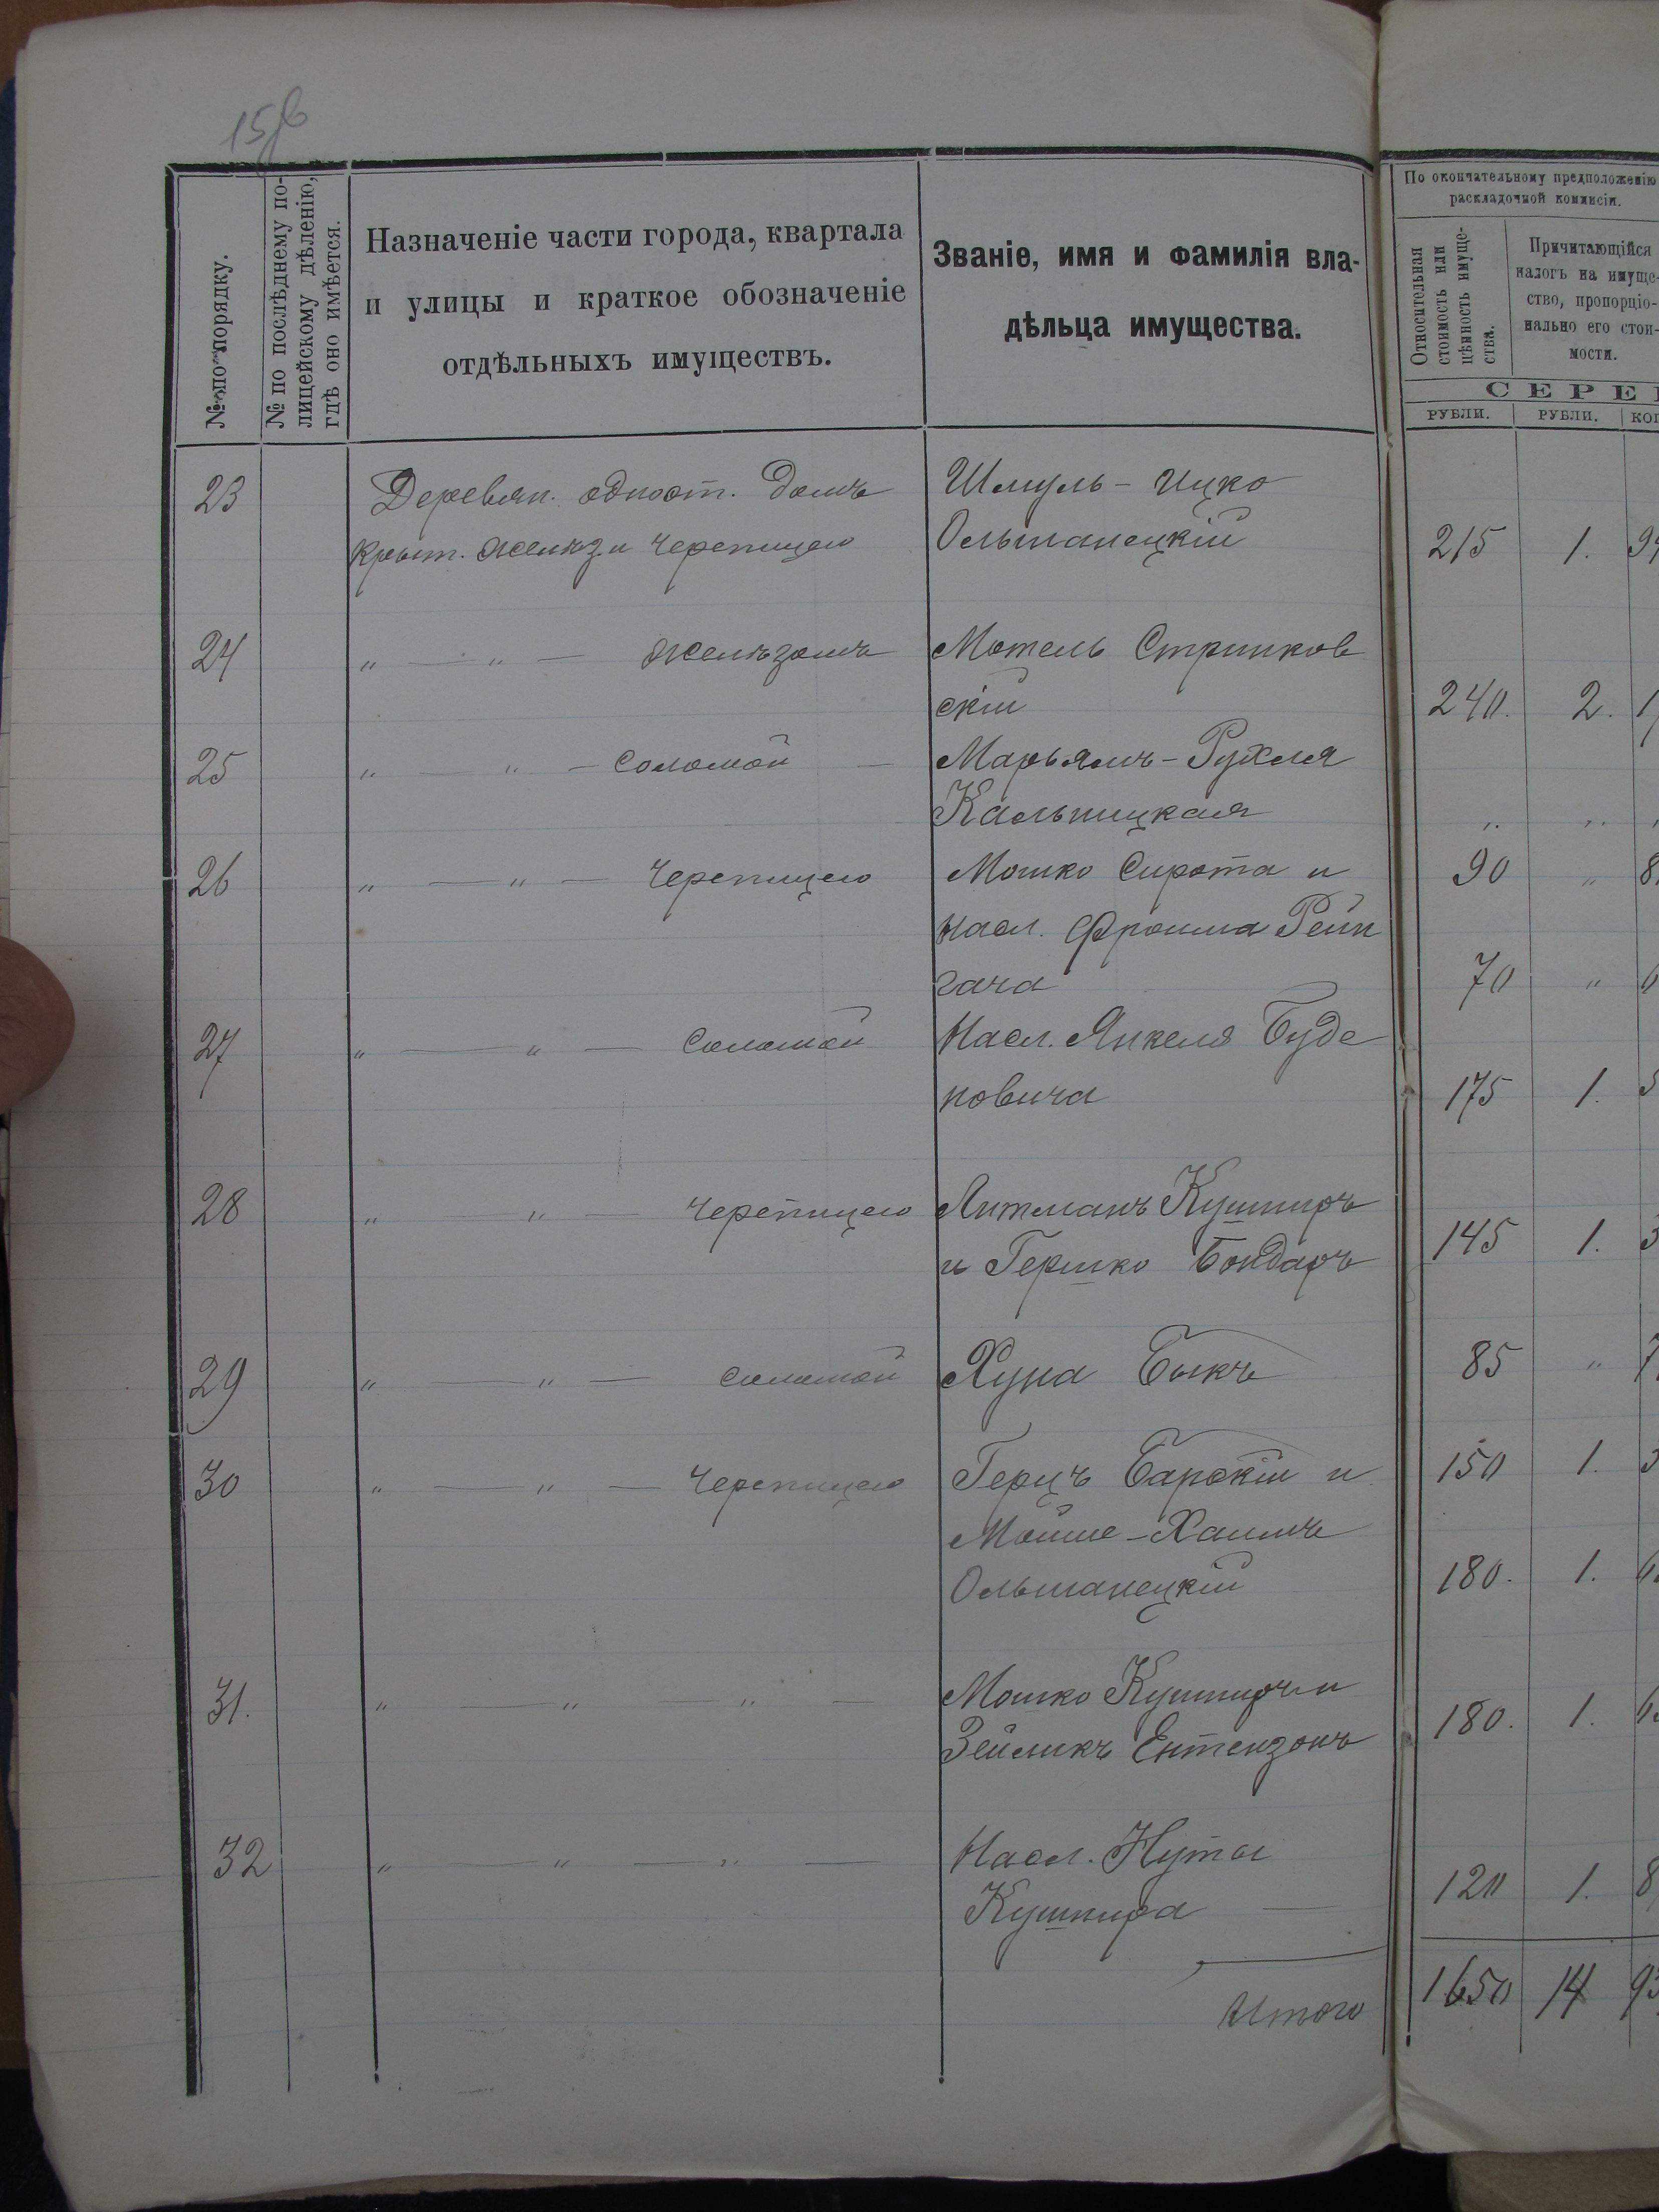 15об
№ по порядку.
№ по послѣднему по-
лицейскому дѣленію,
гдѣ оно имѣется.
Назначеніе части города, квартала
и улицы и краткое обозначеніе
отдѣльныхъ имуществъ.
Званіе, имя и фамилія вла-
дѣльца имущества.
По окончательному предположенію
раскладочной коммисіи.
Относительная
стоимость или
цѣнность имуще-
ства.
Причитающійся
налогъ на имуще-
ство, пропорціо-
нально его стои-
мости.
СЕРЕ
РУБЛИ. РУБЛИ. КОП
23 Деревян. одност. домъ Шмуль-Ицко
крыт. желѣз и черепицею Ольшанецкій 215 1. 94
24 " — " — желѣзомъ Мотель Стринков
скій 240. 2. 1
25 " " — соломой — Марьямъ-Рухля
Кальницкая " "
26 " — " — черепицею Мошко Сирота и 90 " 8
насл. Фроима Рейн
гача 70 " 6
27 " — " — соломой Насл. Янкеля Буде
новича 175 1. 5
28 " — " — черепицею Антманъ Кушниръ
и Гершко Бондаръ 145 1. 3
29 " — " — соломой Хуна Быкъ 85 " 7
30 " — " — черепицею Герцъ Барскій и 150 1. 3
Мойше-Хаимъ
Ольшанецкій 180. 1. 6
31. " — " — " — Мошко Кушниръ и
Зейликъ Ентензонъ 180. 1. 6
32 " " — " — Насл. Нуты
Кушнира — 120 1. 8
Итого 1650 14 93